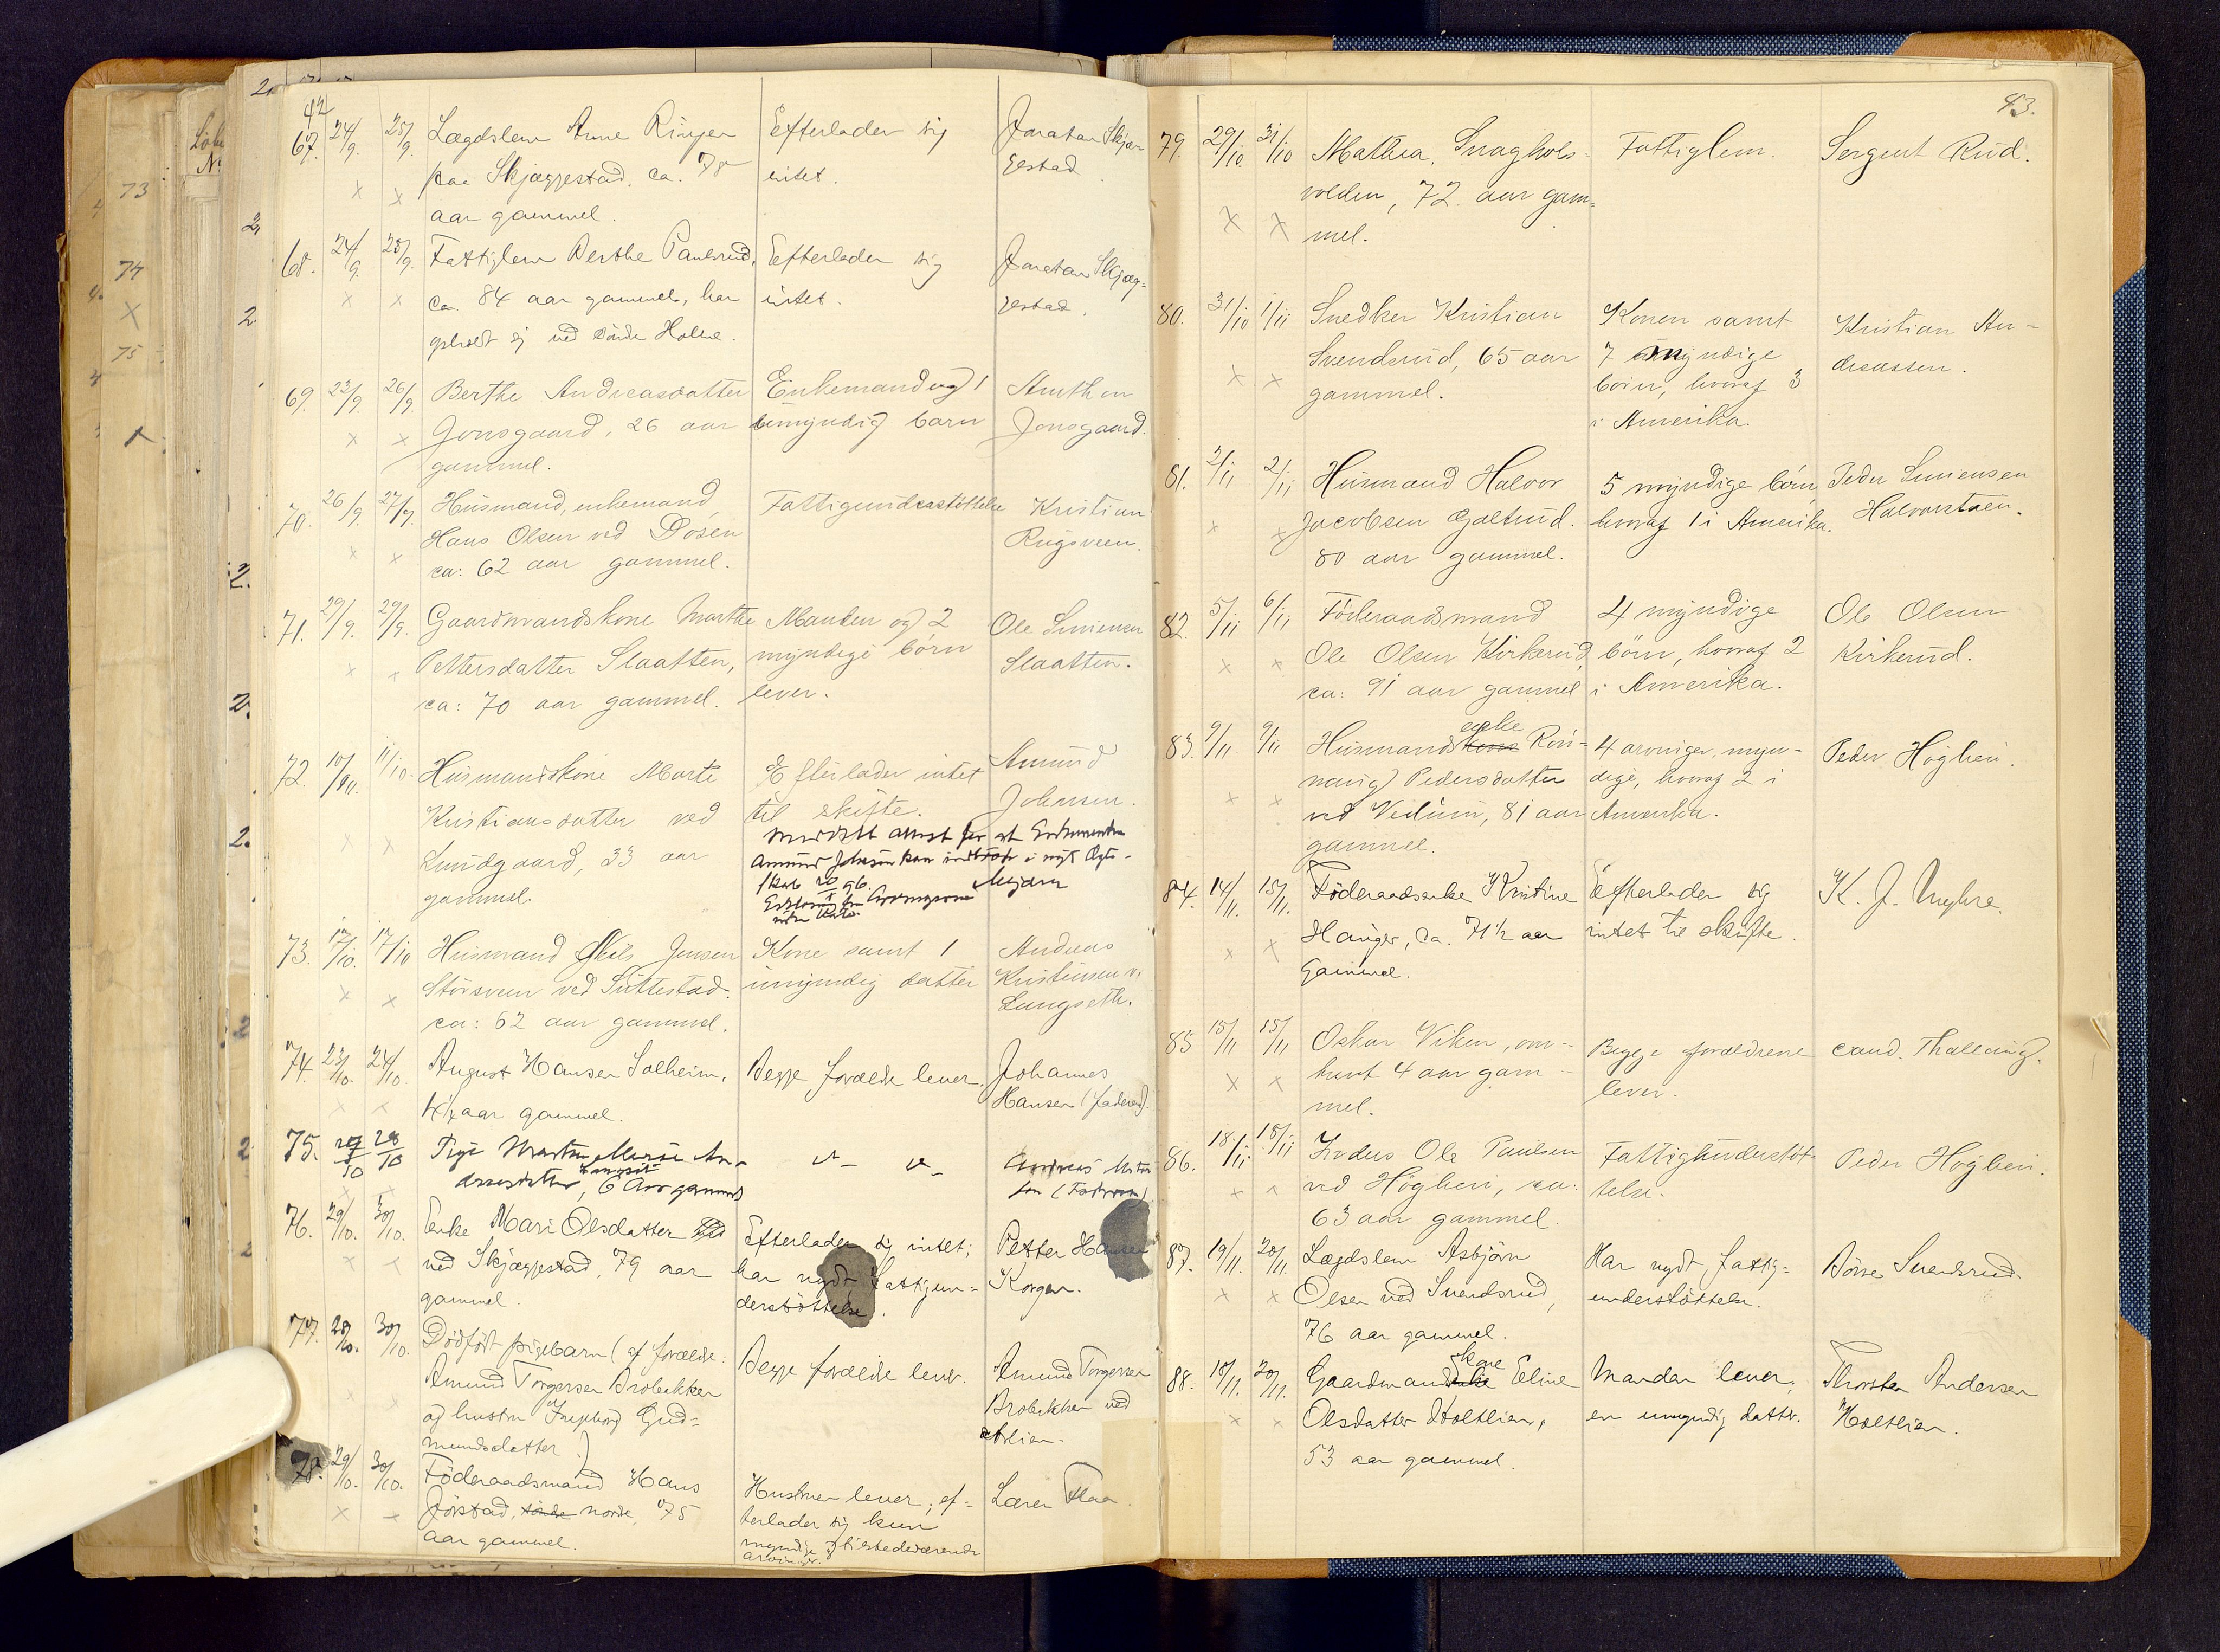 42
67. 24/9. 25/9. Lægdslem Anne Ringen Efterlader sig Jonatan Skjæg
paa Skjæggestad, ca. 78 intet. gestad.
aar gammel.
68. 24/9. 25/9. Fattiglem Berthe Paulsrud, Efterlader sig Jonatan Skjæg-
ca. 84 aar gammel, har intet. gestad.
opholdt sig ved søndre Holme.
69. 23/9. 26/9. Berthe Andreasdatter Enkemand og 1 Amthon
Jonsgaard, 26 aar umyndig barn Jonsgaard.
gammel.
70. 26/9. 27/9. Husmand, enkemand Fattigunderstøttelse Kristian
Hans Olsen ved Dosen Rugsveen.
ca: 62 aar gammel.
71. 29/9. 29/9. Gaardmandskone Marthe Manden og 2 Ole Simensen
Pettersdatter Slaatten, myndige børn Slaatten.
ca: 70 aar gammel. lever.
72. 10/ 11/10. Husmandskone Marte Efterlader intet Amund
Kristiansdatter ved til skifte. Johnsen.
Lundgaard, 33 aar Meddelt attest for at Enkemanden
gammel. Amund Johnsen kan indtræde i nyt Ægte-
skab 20/ 96.
73. 17/10. 17/10 Husmand Nils Jensen Kone samt 1 Andreas
Størsveen ved Suttestad. umyndig datter Kristiansen v.
ca: 62 aar gammel. Langseth.
74. 23/10. 24/10. August Hansen Solheim, Begge forældre lever. Johannes
4 1/4 aar gammel. Hansen (faderen).
75. 28/10 Pige Marthe Marie An-
dreasdatter, 6 Aar gammel
76. 29/10. 30/10. Enke Mari Olsdatter Efterlader sig intet; Petter Hansen
ved Skjæggestad, 79 aar har nydt fattigun- Korgen.
gammel. derstøttelse.
77. 28/10. 30/10. Dødfødt pigebarn (af forældre: Begge forældre lever. Amund Torgersen
Amund Torgersen Brobekken Brobekken ved
og hustru Ingeborg Gud-
mundsdatter)
78. 29/10. 30/10. Föderaadsmand Hans Hustruen lever; ef- Lærer Flaa.
Jørstad, søndre nordre, 75 terlader sig kun
aar gammel. myndige tilstedeværende
arvinger.
43.
79. 29/10 31/10 Mathea Snaghols- Fattiglem. Sergent Rud.
volden, 72. aar gam-
mel.
80. 31/10 1/11 Snedker Kristian Konen samt Kristian An-
Svendsrud, 65 aar 7 myndige dreassen.
gammel. børn, hvoraf 3
i Amerika.
81. 2/11 2/11 Husmand Halvor 5 myndige børn, Peder Simensen
Jacobsen Galtrud. hvoraf 1 i Amerika. Halvorstuen.
80 aar gammel.
82. 5/11 6/11 Föderaadsmand 4 myndige Ole Olsen
Ole Olsen Kirkerud, børn, hvoraf 2 Kirkerud.
ca: 91 aar gammel i Amerika.
83. 9/11 9/11 Husmandskone enke Røn- 4 arvinger, myn- Peder Høghei.
naug Pedersdatter dige, hvoraf 2 i
ved Vedum, 81 aar Amerika.
gammel.
84. 14/11. 15/11. Föderaadsenke Kristine Efterlader sig K. J. Myhre.
Hanger, ca. 71 1/2 aar intet til skifte.
Gammel.
85 15/11 15/11 Oskar Viken, om- Begge forældrene cand. Thallaug.
trent 4 aar gam- lever.
mel.
86. 18/11 18/11 Inderst Ole Paulsen Fattigunderstøt- Peder Høghei.
ved Høghei, ca: telse.
63 aar gammel.
87. 19/11. 20/11. Lægdslem Asbjørn Har nydt fattig- Børre Svendsrud.
Olsen ved Svendsrud, understøttelse.
76 aar gammel.
88. 18/11. 20/11. Gaardmandsenke kone Eline Manden lever; Thorsten Andersen
Olsdatter Holtlien, en umyndig datter. Holtlien.
53 aar gammel.